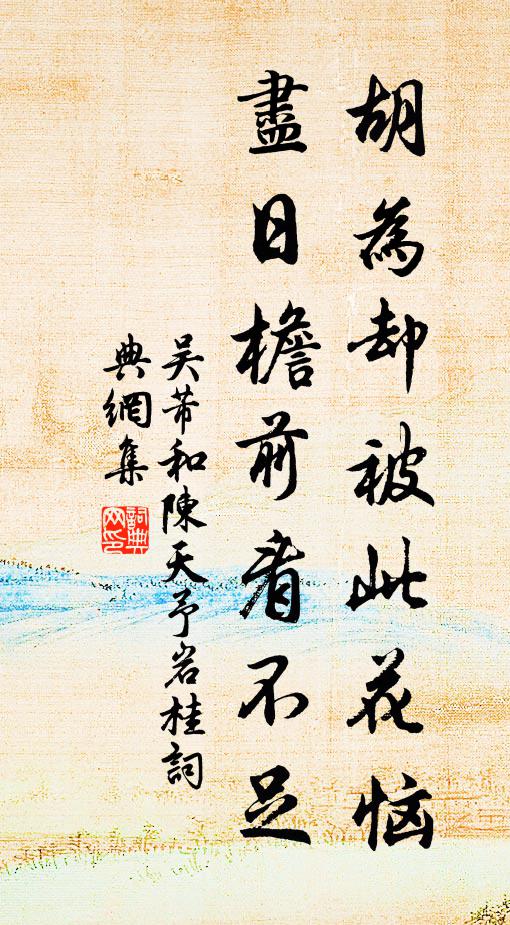 胡為却被此花恼
盡日檐前看不足
吴芾和陳天予岩桂詞
典網集
詞典
网印